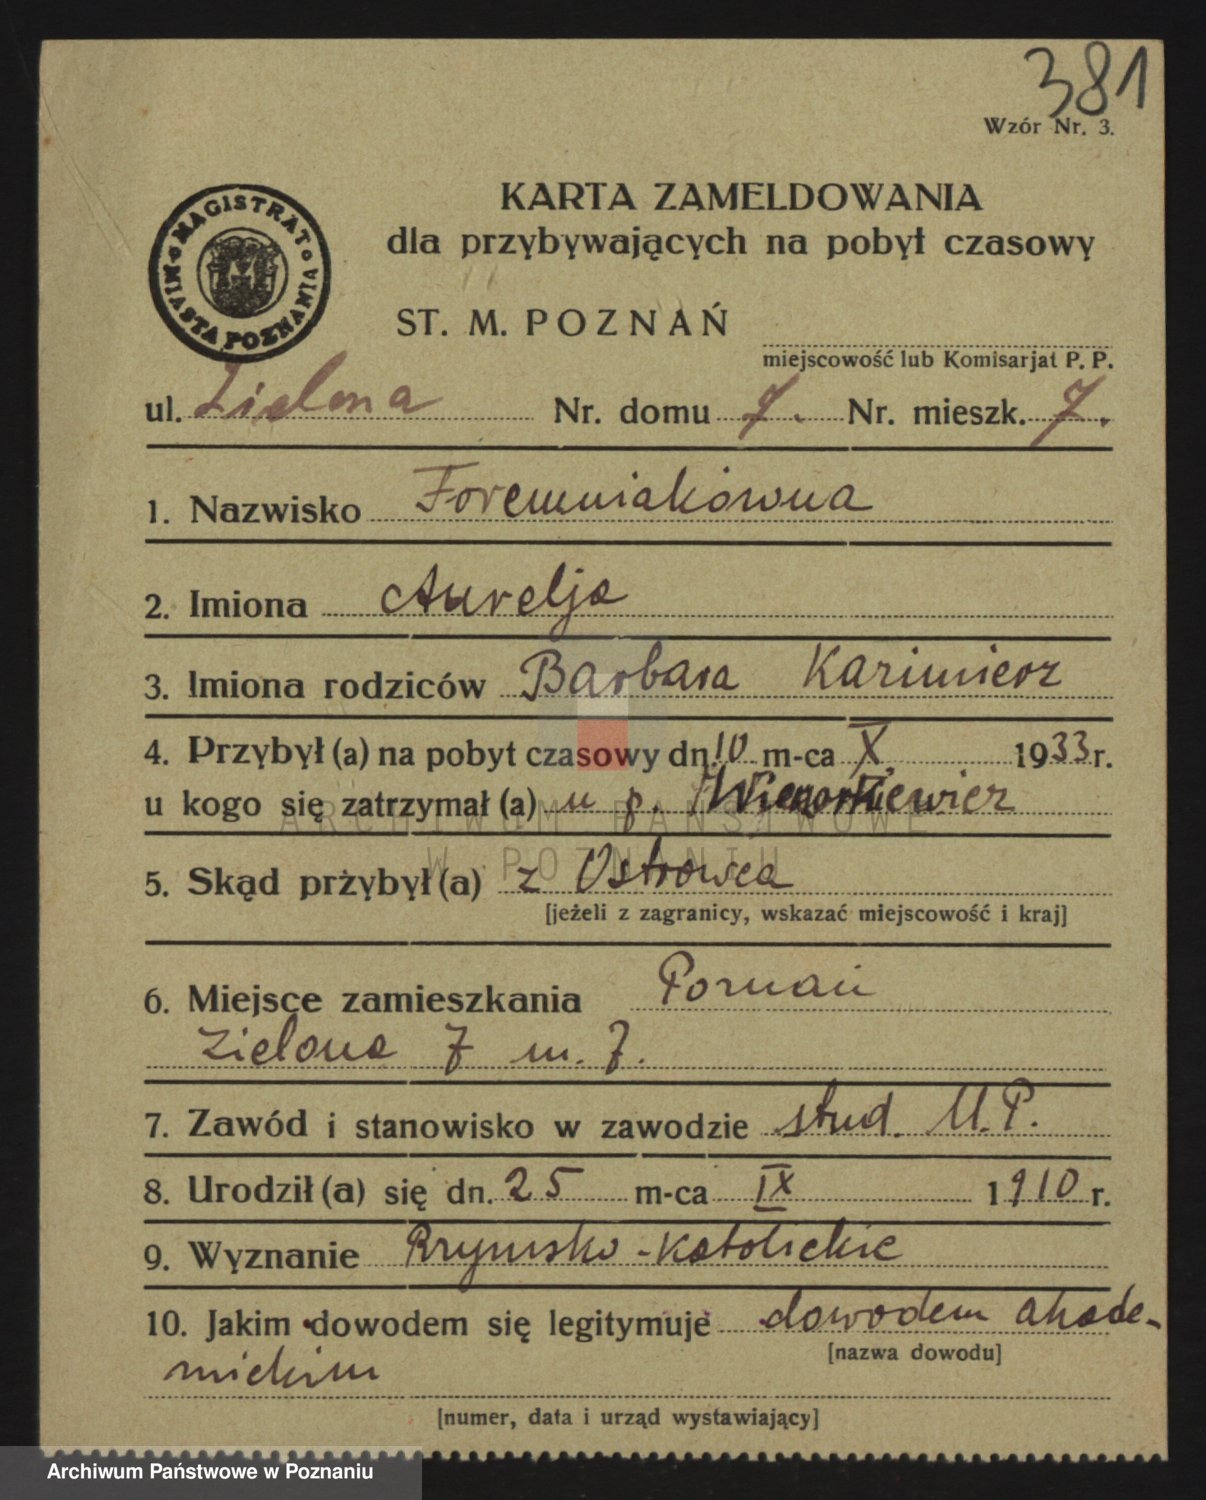 381
Wzór Nr. 3.
MAGISTRAT MIASTA POZNANIA
KARTA ZAMELDOWANIA
dla przybywających na pobyt czasowy
ST. M. POZNAŃ
miejscowość lub Komisarjat P. P.
ul. Zielona Nr. domu 7. Nr. mieszk. 7.
1. Nazwisko Foremniakówna
2. Imiona Aurelja
3. Imiona rodziców Barbara Kazimierz
4. Przybył (a) na pobyt czasowy dn. 10 m-ca X 1933 r.
u kogo się zatrzymał (a) u p.
ARCHIWUM PAŃSTWOWE
W POZNANIU
5. Skąd przybył (a) z Ostrowca
[jeżeli z zagranicy, wskazać miejscowość i kraj]
6. Miejsce zamieszkania Poznań
Zielona 7 m. 7.
7. Zawód i stanowisko w zawodzie stud. U.P.
8. Urodził (a) się dn. 25 m-ca IX 1910 r.
9. Wyznanie Rzymsko-katolickie
10. Jakim dowodem się legitymuje dowodem akade-
[nazwa dowodu]
mickim
[numer, data i urząd wystawiający]
Archiwum Państwowe w Poznaniu